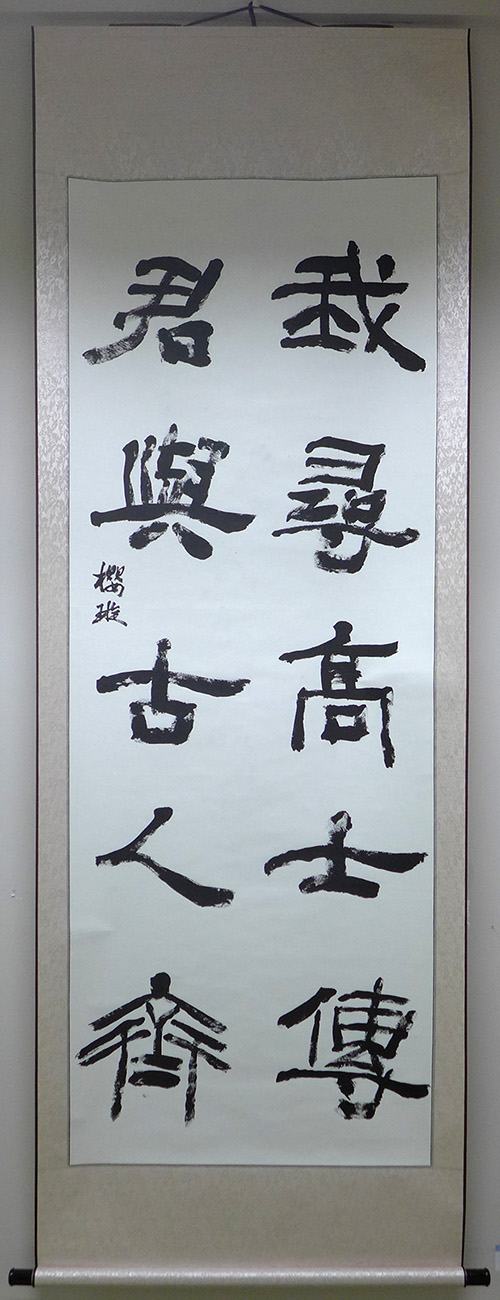 我尋高士傳
君與古人齊
櫻璇